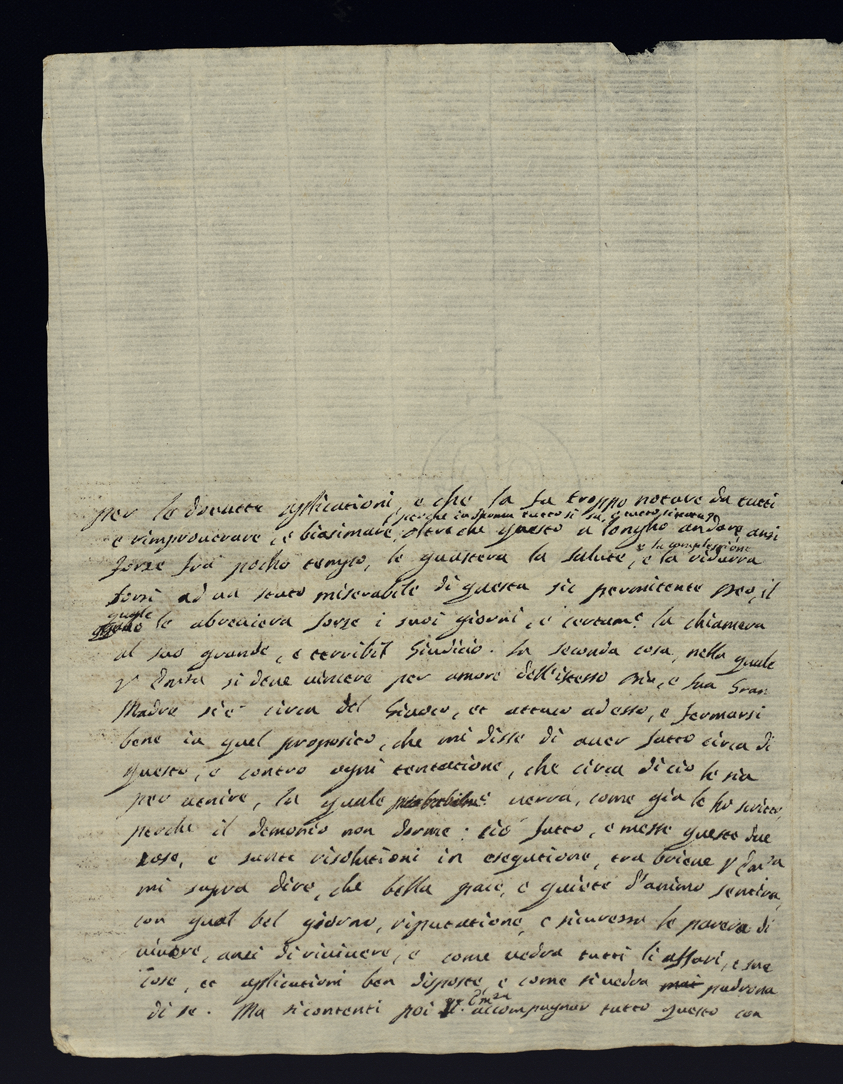 per le dovutte applicationi, e che la fa troppo notare da tutti
perche in somma tutto si sa, e tutto si nota
e rimproverare, e biasimare, oltre che questo a longho andare, anzi
e la complessione
forze frà pocho tempo, le guasterà la salute, e la ridurrà
forsi ad un stato miserabile di questa sie permitente Dio, il
quale
le abrevierà forze i suoi giorni, e certamᵉ la chiamerà
al suo grande, e terribil Giudicio. La seconda cosa, nella quale
V Emza si deve vincere per amore dell'istesso Dio, e sua Gran
Madre si è circa del Giuoco, et attaco ad esso, e fermarsi
bene in quel proposito, che mi disse di aver fatto circa di
questo, e contro ogni tentatione, che circa di ciò le sia
per venire, la quale probabilmᵉ verrà, come già le ho scritto,
perche il demonio non dorme: ciò fatto, e messe queste due
cose, e sante risolutioni in esegutione, tra brieve V Emza
mi saprà dire, che bella pace, e quiete d'animo sentirà,
con qual bel giorno, riputatione, e sicurezza le parerà di
vivere, anzi di rivivere, e come vedrà tutti li affari, e sue
cose, et applicationi ben disposte, e come si vedrà mai padrona
di se. Ma si contenti poi V. Emza accompagnar tutto questo con